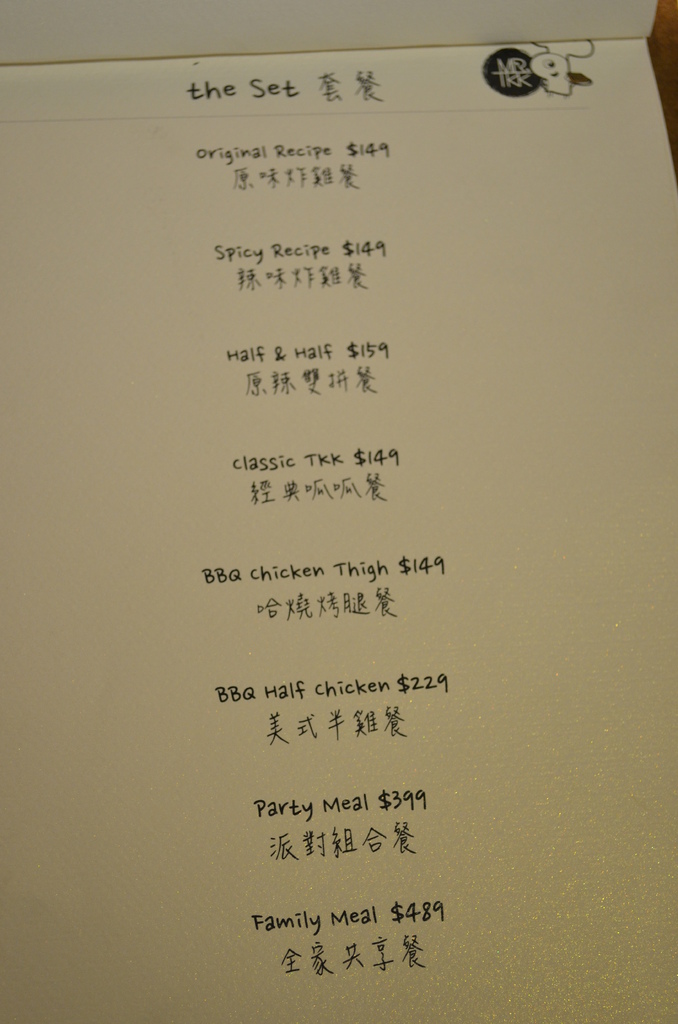 the Set 套餐
Original Recipe $149
原味炸雞餐
Spicy Recipe $149
辣味炸雞餐
Half & Half $159
原辣雙拼餐
Classic TKK $149
經典呱呱餐
BBQ Chicken Thigh $149
哈燒烤腿餐
BBQ Half Chicken $229
美式半雞餐
Party Meal $399
派對組合餐
Family Meal $489
全家共享餐